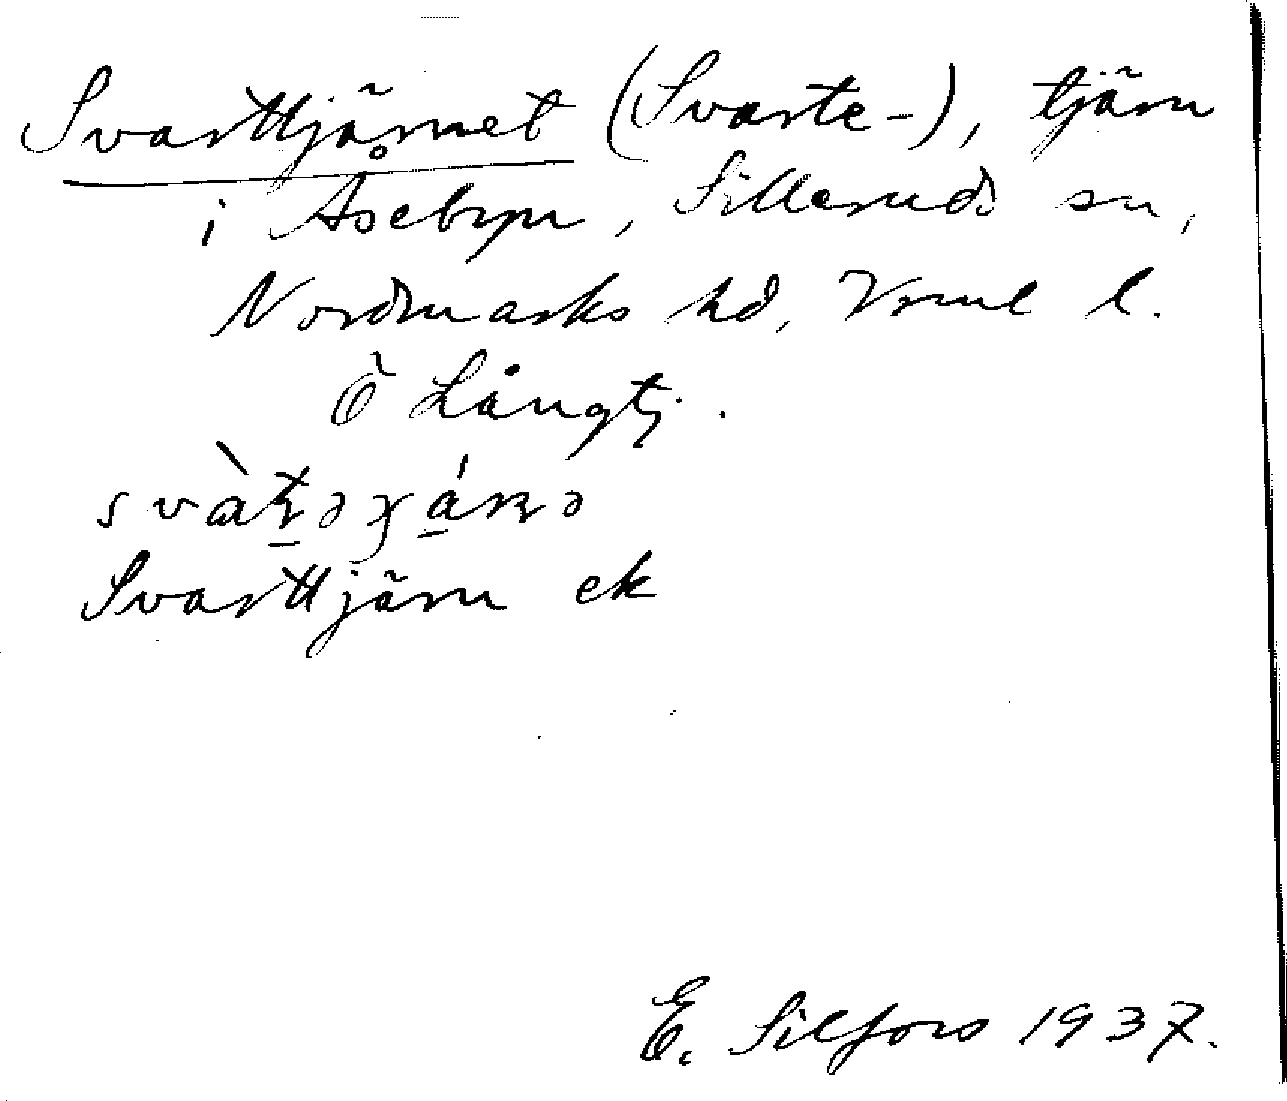 Svarttjärnet (Svarte-), tjärn
i Åsebyn, Silleruds sn,
Nordmarks hd, Vrml l.
Ö Långtj.
Svarttjärn ek
E. Silfors 1937.